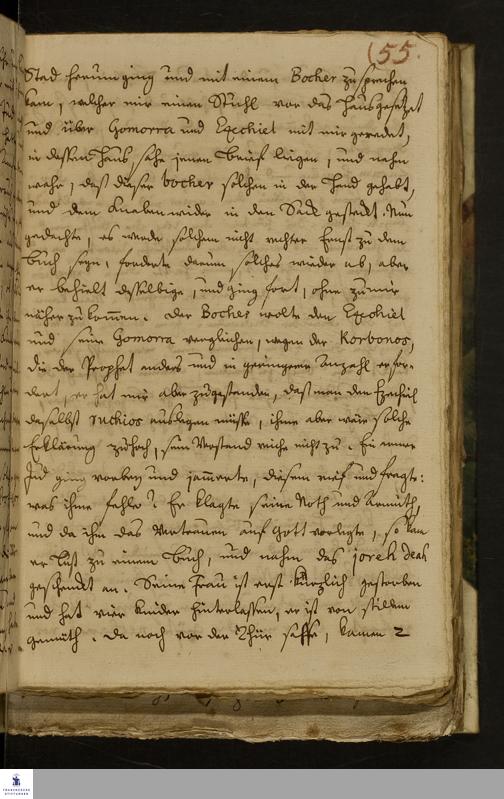 (55.
Stad herumging und mit einem Bocher zu sprechen
kam, welcher mir einen Stuhl vor das Haus gesetzet
und über Gomorra und Ezechiel mit mir geredet,
in dessen Haus sahe jenen Brief liegen, und nahm
wahr, daß dieser bocher solchen in der Hand gehabt,
und dem Knaben wider in den Sack gesteckt. Nun
gedachte, es werde solchem nicht rechter Ernst zu dem
Buch seyn, forderte darum solches wieder ab, aber
er behielt dasselbige, und ging fort, ohne zu mir
näher zu kommen. Der Bocher wolte den Ezechiel
und seine Gomorra vergleichen, wegen der Korbonos,
die der Prophet anders und in geringerer Anzahl erfor-
dert, er hat mir aber zugestanden, daß man den Ezechiel
daselbst ruchios auslegen müste, ihme aber wäre solche
Erklärung zu hoch, sein Verstand reiche nicht zu. Ein armer
Jud ging vorbey und jam̅erte, diesem rief und fragte:
was ihme fehle? Er klagte seine Noth und Armuth,
und da ihm das Vertrauen auf Gott vorlegte, so kam
er Lust zu einem Buch, und nahm das joreh deah
geschenckt an. Seine Frau ist erst kürzlich gestorben
und hat vier Kinder hinterlassen, er ist von stillem
gemüth. Da noch vor der Thür saße, kamen 2
FRANCKESCHE
STIFTUNGEN